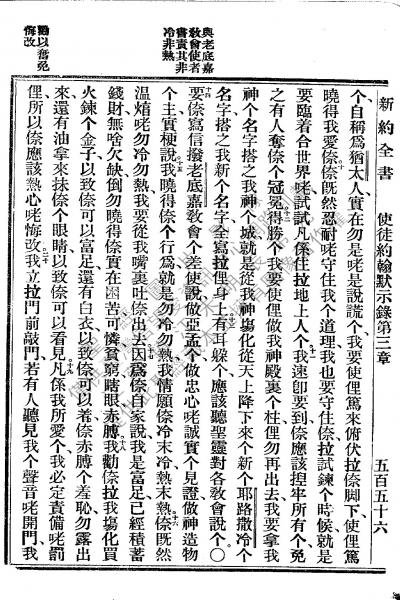 新約全書 使徒約翰默示錄第三章 五百五十六
個自稱爲猶太人、實在勿是咾是說謊个、我要使俚篤來俯伏拉倷脚下、使俚篤
曉得我愛倷、十倷旣然忍耐咾守住我个道理、我也要守住倷拉試鍊个時候、就是
要臨着合世界咾試試凡係住拉地上人个、十一我速卽要到、倷應該揑牢所有个、免
之有人奪倷个冠冕、十二得勝个、我要使俚做我神殿裏个柱、俚勿再出去、我要拿我
神个名字、搭之我神个城就是從我神塲化從天上降下來个新个耶路撒冷个
名字、搭之我新个名字、全寫拉俚身上、十三有耳朶个應該聽聖靈對各敎會說个〇
十四要倷寫信撥老底嘉敎會个差使說、做亞孟个、做忠心咾誠實个見證、做神造物
个主、實梗說、十五我曉得倷个行爲、就是勿冷勿熱、我情願倷冷末冷、熱末熱、十六倷旣然
温㷟咾勿冷勿熱、我要從我嘴裏吐倷出去、十七因爲倷自家說、我是富足、已經積蓄
錢財、無啥欠缺、倒勿曉得倷實在困苦可憐貧窮瞎眼赤膊、十八我勸倷拉我塲化買
火鍊个金子、以致倷可以富足、還有白衣、以致倷可以着、倷赤膊个羞恥勿露出
來、還有油拿來抹倷个眼睛、以致倷可以看見、十九凡係我所愛个、我必定責備咾罰
俚、所以倷應該熱心咾悔改、二十我立拉門前敲門、若有人聽見我个聲音咾開門、我
與老底嘉
敎會使者
書責其非
冷非熱
勸以奮免
悔改